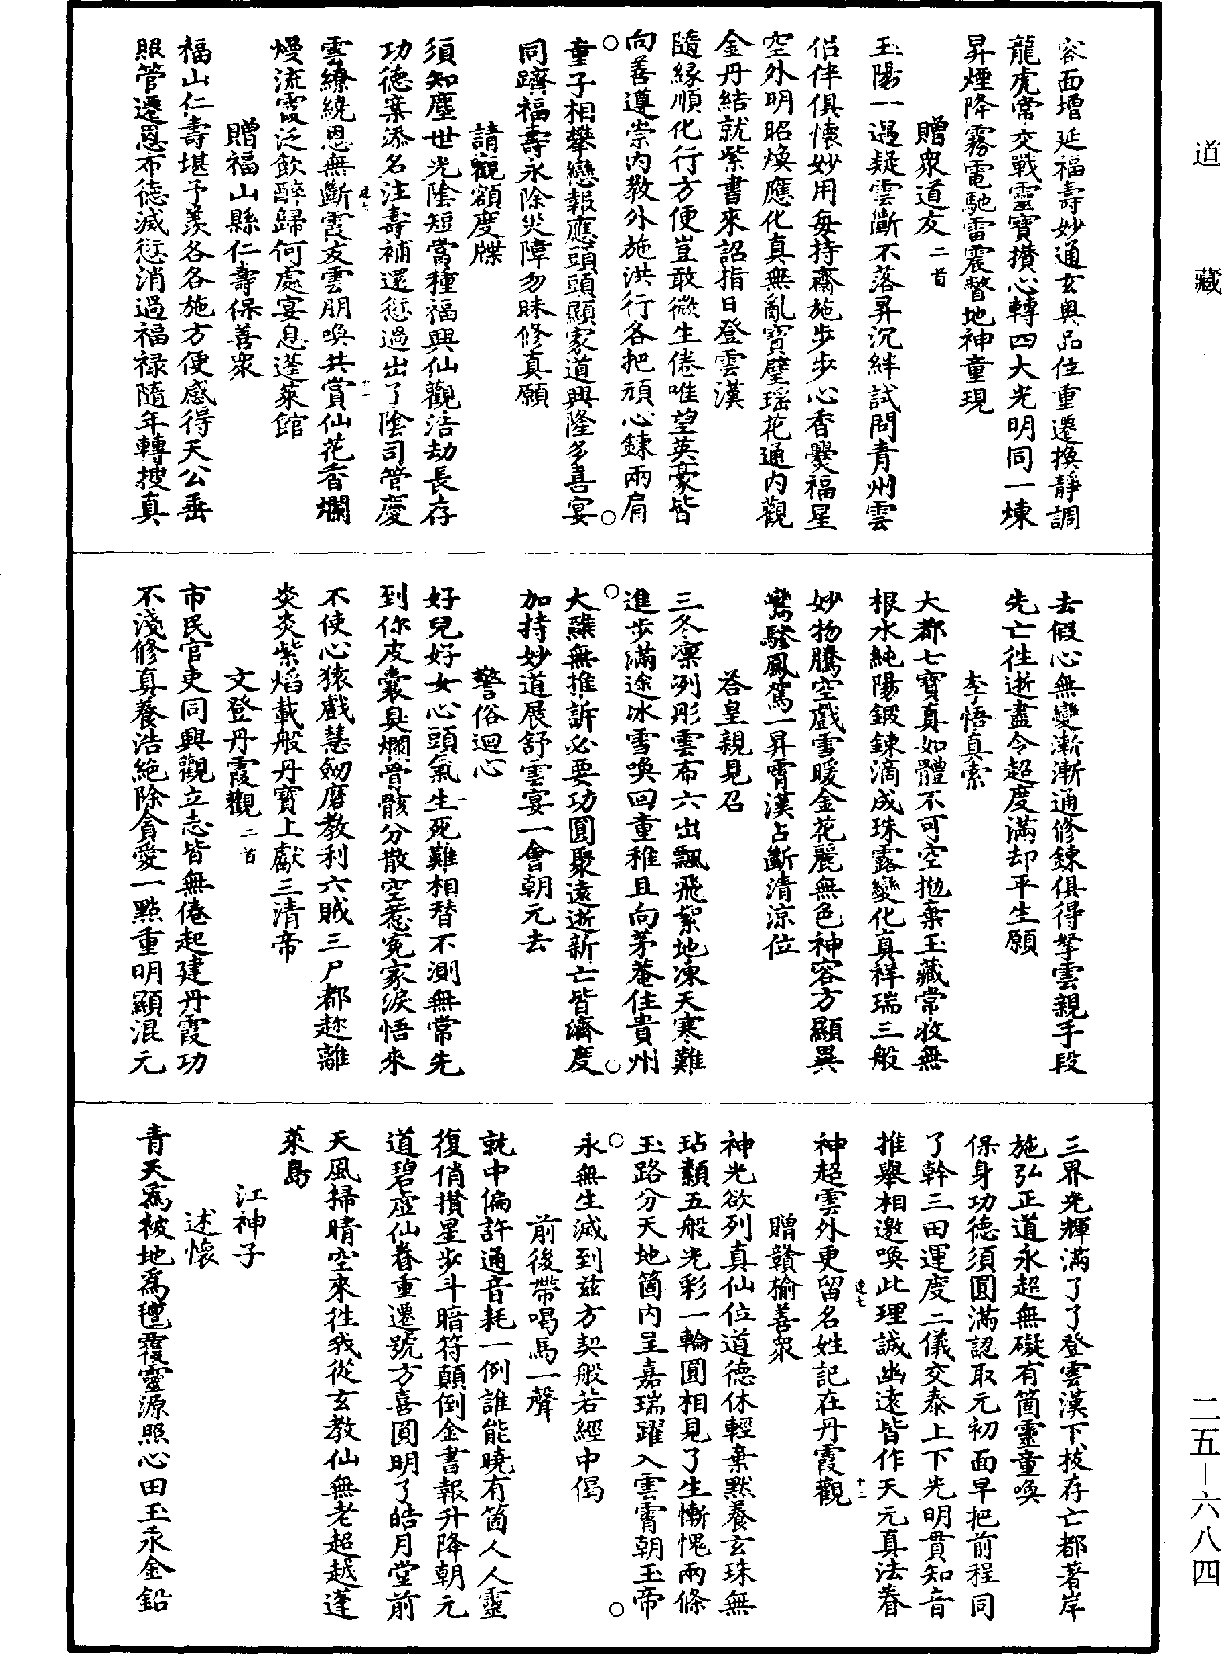 道藏
二五-六八四
容面增延福壽妙通玄奧品位重遷換靜調
龍虎常交戰靈寶攢心轉四大光明同一煉
昇煙降霧電馳雷震瞥地神童現
贈衆道友二首
玉陽一遇疑雲斷不落昇沉絆試問青州雲
侶伴俱懷妙用每持齋施步步心香爨福星
空外明昭煥應化真無亂寶璧瑶花通內觀
金丹結就紫書來詔指日登雲漢
隨緣順化行方便豈敢微生倦唯望英豪皆
向善遵崇內教外施洪行各把頑心鍊兩肩
○童子相攀戀報應頭頭顯家道興隆多喜宴○
同躋福壽永除災障勿昧修真願
請觀額度牒
須知塵世光陰短當種福興仙觀浩劫長存
功德案添名注壽補還愆過出了陰司管慶
雲繚繞恩無斷霞友雲朋喚共賞仙花香爛
熳流霞泛飲醉歸何處宴息蓬萊館
贈福山縣仁壽保善衆
福山仁壽堪予羡各各施方便感得天公垂
照管遷恩布德滅愆消過福禄隨年轉搜真
去假心無變漸漸通修鍊俱得拏雲親手段
先亡徃逝盡令超度滿却平生願
李了悟真索
大都七寶真如體不可空抛棄玉藏常收無
根水純陽鍛鍊滴成珠露變化真祥瑞三般
妙物騰空戲雪暖金花麗無色神容方顯異
鸞驂鳳駕一昇霄漢占斷清凉位
荅皇親見召
三冬凜冽彤雲布六出飄飛絮地凍天寒難
進步滿途冰雪喚回重稚且向茅菴住貴州
○大醮無推訴必要功圓聚遠逝新亡皆濟度○
加持妙道展舒雲宴一會朝元去
警俗迴心
好兒好女心頭氣生死難相替不測無常先
到你皮囊臭爛骨骸分散空惹冤家淚悟來
不使心猿戲慧劒磨教利六賊三尸都趂離
炎炎紫焰載般丹寶上獻三清帝
文登丹霞觀二首
市民官吏同興觀立志皆無倦起建丹霞功
不淺修真養浩絶除貪愛一點重明顯混元
三界光輝滿了了登雲漢下拔存亡都著岸
施弘正道永超無礙有箇靈童喚
保身功德須圓滿認取元初面早把前程同
了幹三田運度二儀交泰上下光明貫知音
推舉相邀喚此理誠幽遠皆作天元真法眷
神超雲外更留名姓記在丹霞觀
贈贛榆善衆
神光欲列真仙位道德休輕棄默養玄珠無
玷纇五般光彩一輪圓相見了生慚愧兩條
玉路分天地箇內呈嘉瑞躍入雲霄朝玉帝
○永無生滅到兹方契般若經中偈○
前後帶喝馬一聲
就中偏許通音耗一例誰能曉有箇人人靈
復俏攢星步斗暗符顛倒金書報升降朝元
道碧虛仙眷重遷號方喜圓明了皓月堂前
天風掃晴空來徃我從玄教仙無老超越蓬
萊島
江神子
述懷
青天爲被地爲氊覆靈源照心田玉汞金鉛